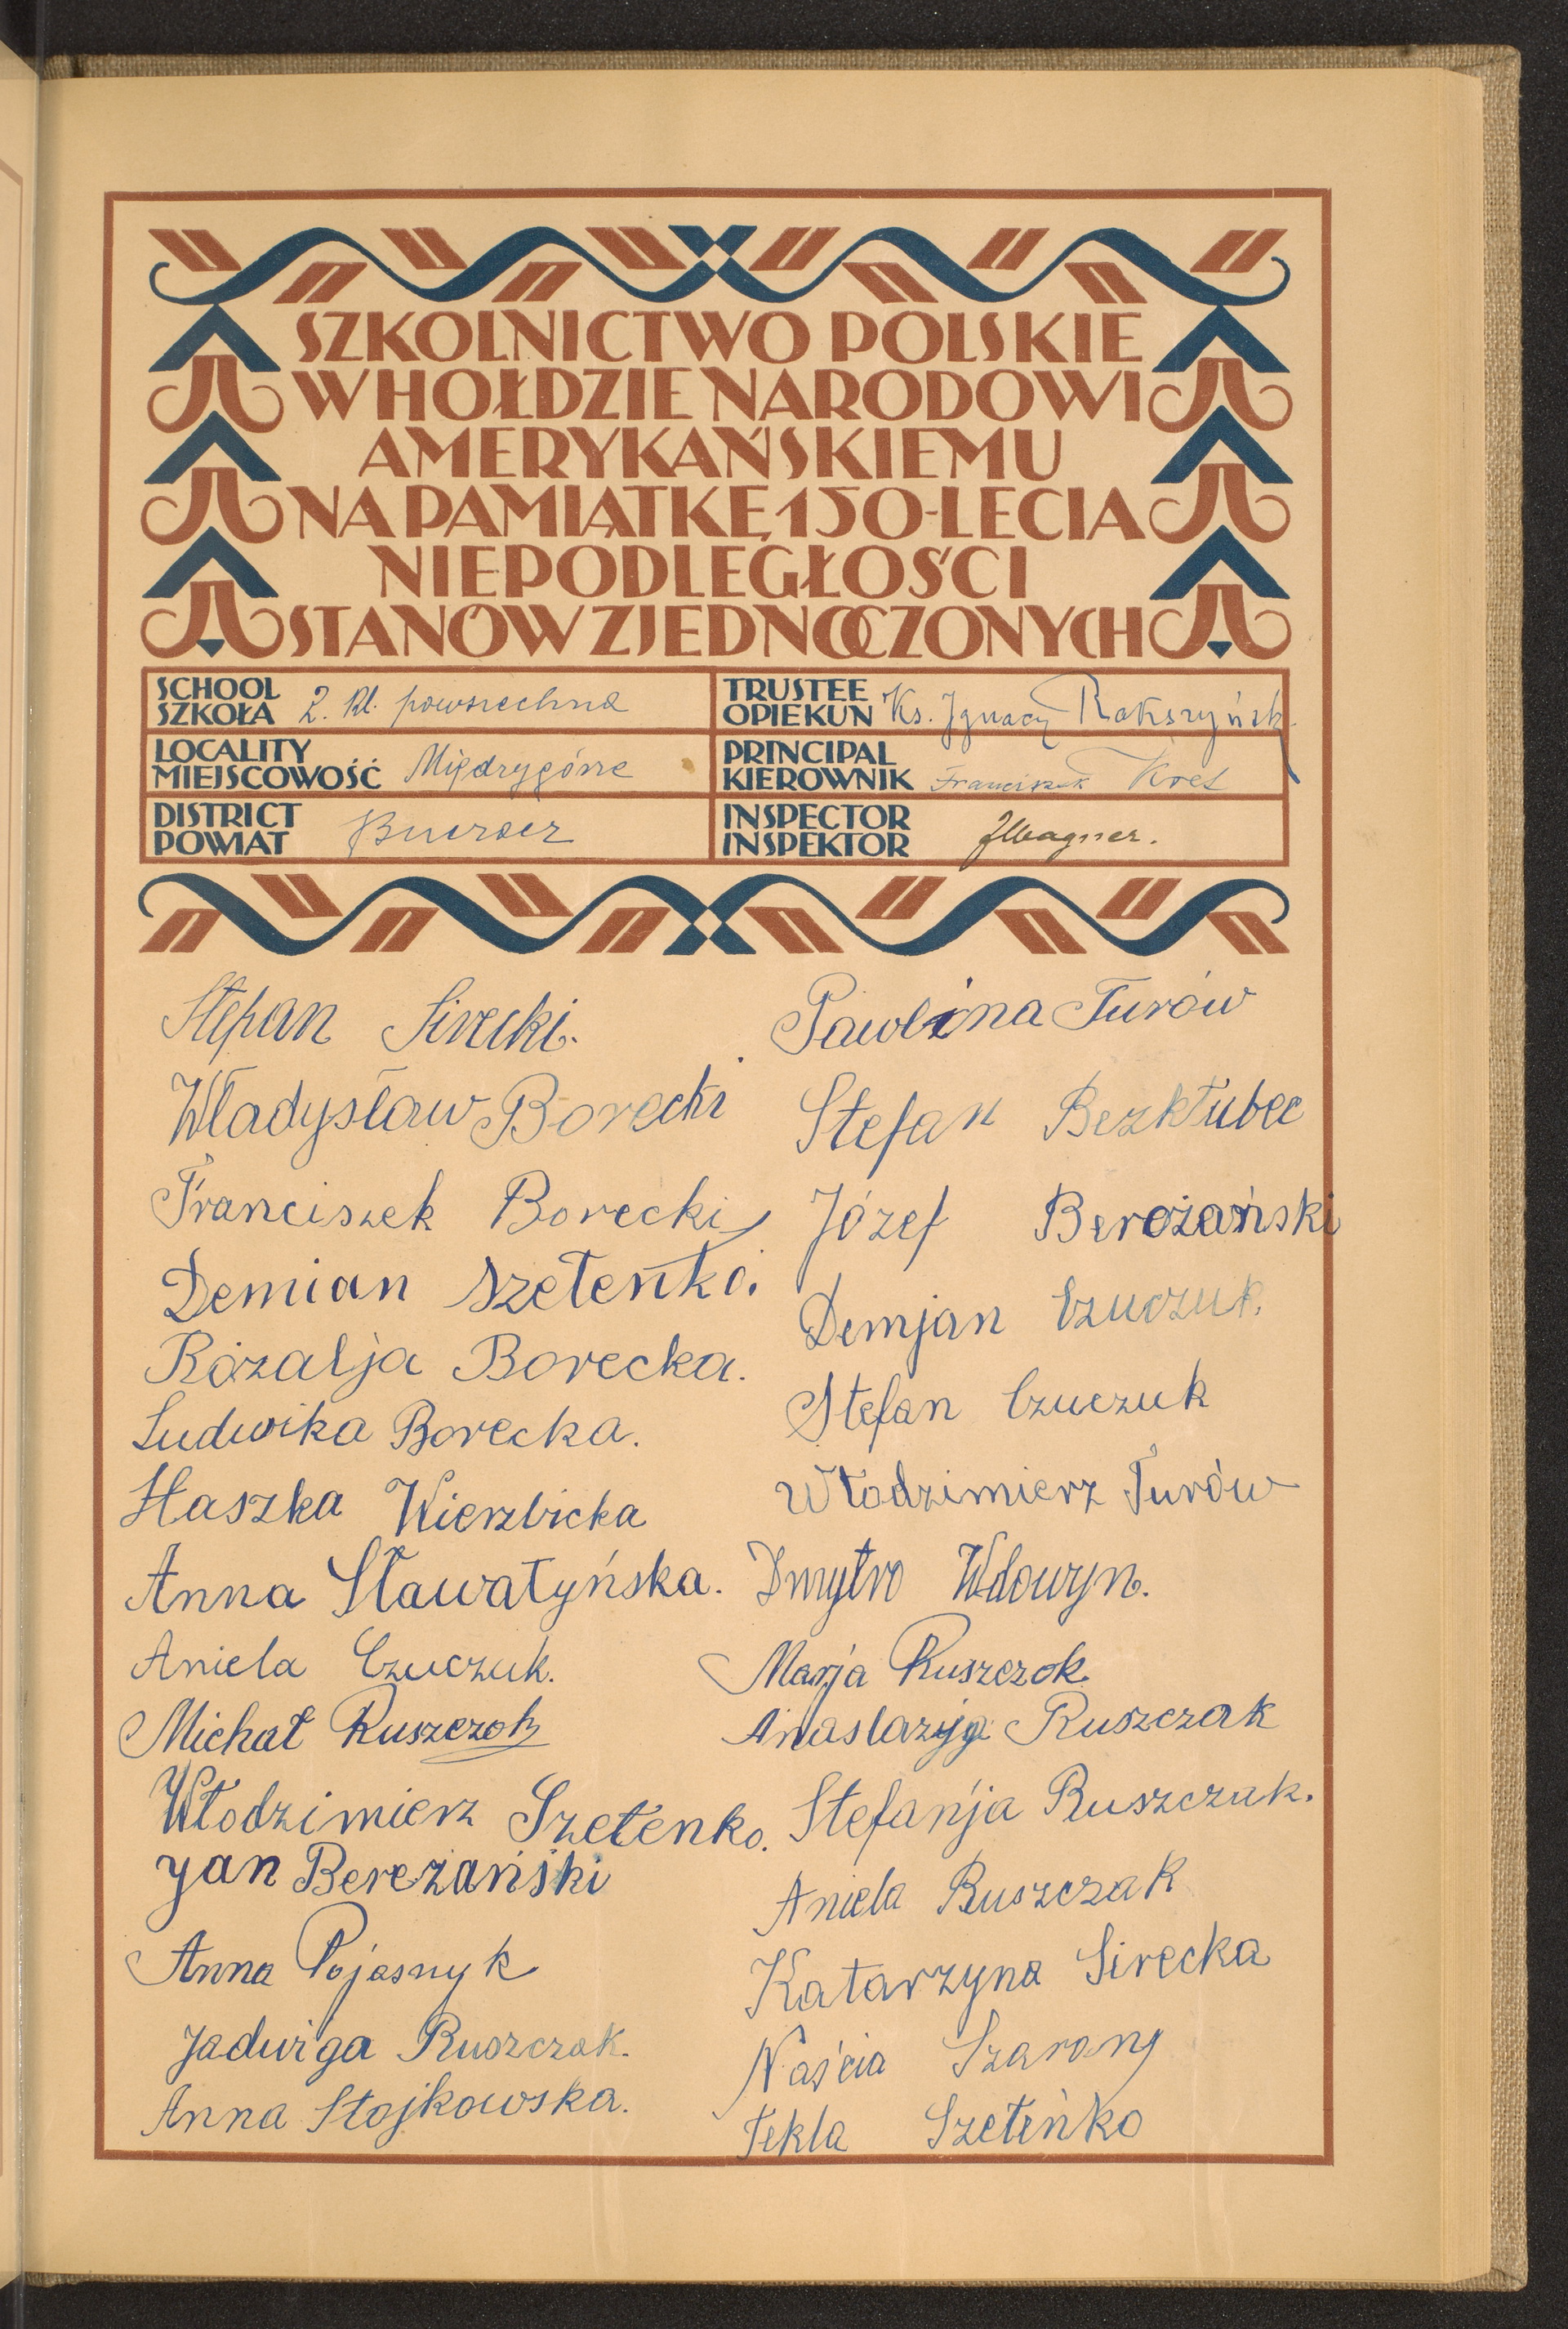 SZKOLNICTWO POLSKIE
W HOŁDZIE NARODOWI
AMERYKAŃSKIEMU
NA PAMIĄTKĘ 150-LECIA
NIEPODLEGŁOŚCI
STANÓW ZJEDNOCZONYCH
SCHOOL
SZKOŁA 2. kl. powszechna
LOCALITY
MIEJSCOWOŚĆ Międzygórze
DISTRICT
POWIAT Buczacz
TRUSTEE
OPIEKUN Ks. Ignacy Rokszyński
PRINCIPAL
KIEROWNIK Franciszek Kret
INSPECTOR
INSPEKTOR JWagner.
Stefan Sirecki.
Władysław Borecki
Franciszek Borecki
Demian Szeteńko.
Rozalja Borecka.
Ludwika Borecka.
Haszka Wierzbicka
Anna Sławatyńska.
Aniela Czuczuk.
Michał Ruszczok
Włodzimierz Szetenko.
Jan Bereżański
Anna Pojasnyk
Jadwiga Ruszczak.
Anna Stojkowska.
Pawlina Turów
Stefan Bezkłubec
Józef Berożański
Demjan Czuczuk.
Stefan Czuczuk
Włodzimierz Turów
Dmytro Wdowyn.
Marja Ruszczok.
Anastazyja Ruszczak
Stefanja Ruszczak.
Aniela Ruszczak
Katarzyna Sirecka
Naścia Szarong
Tekla Szeteńko